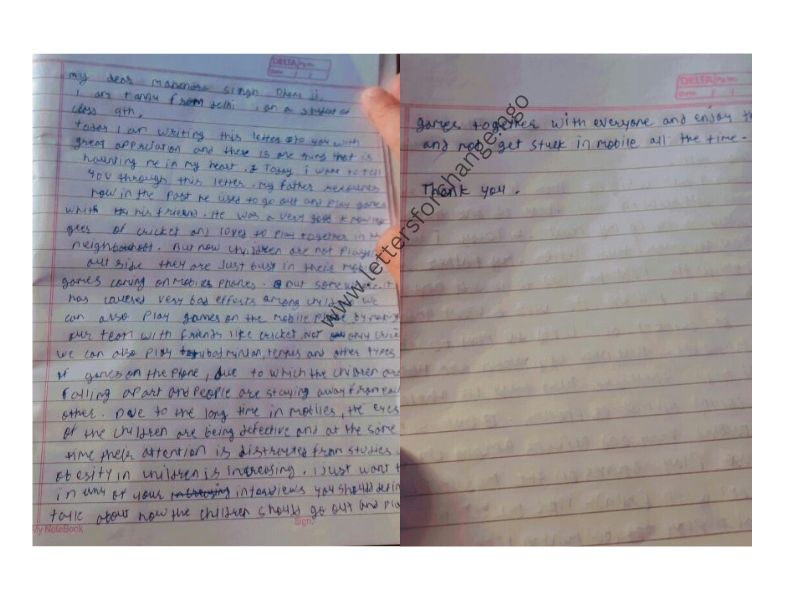 DELTA
Date
my dear Mahendra Singh Dhoni ji,
I am Tanvi from Delhi, I am a student of
class 9th,
today I am writing this letter to you with
great appreciation and there is one thing that is
haunting me in my heart. Today i want to tell
you through this letter. My father
how in the past he used to go out and play games
whith his friend. He was a very good
of cricket and loved to play together in the
But now children are not playing
out side they are Just busy in their
games coming on Mobiles phones. But
has caused very bad effects among children we
can also play games on the mobile phone by
our team with friends like cricket, not only
we can also play badminton, tennis and other types
of games on the phone, due to which the children are
falling apart and people are staying away from each
other. Due to the long time in mobiles, the eyes
of the children are being defective and at the same
time their attention is from studies
obesity in children is increasing. i Just want
in any of your interviews you should
talk about how the children should go out and play
My NoteBook
Sign.
DELTA
Date
games together with everyone and enjoy
and not get stuck in mobile all the time.
Thank you.
www.lettersforchange.ngo